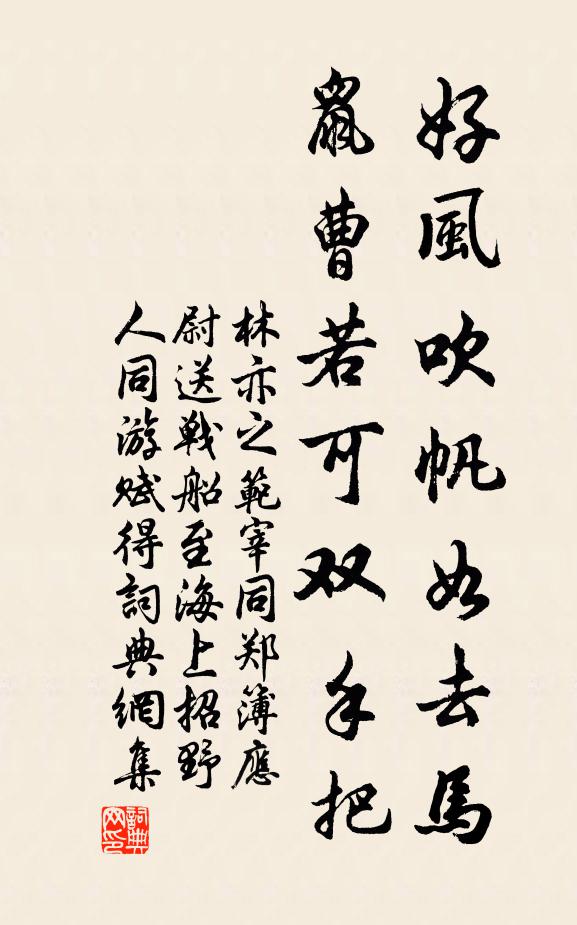 好風吹帆如去馬
鼠曹若可双手把
林亦之範宰同郑簿應
尉送戦船至海上招野
人同游赋得詞典網集
詞典网印